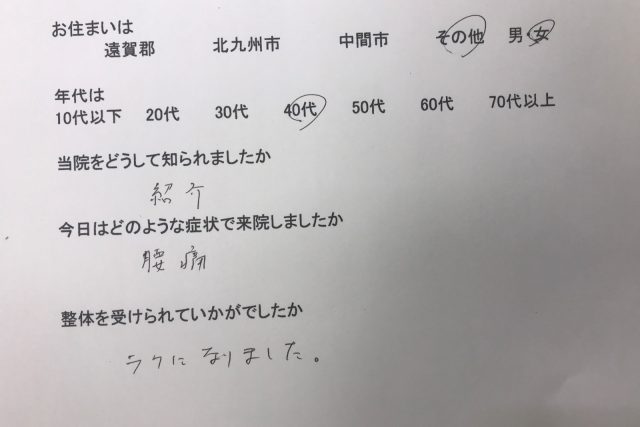 お住まいは
遠賀郡 北九州市 中間市 その他 男・女
年代は
10代以下 20代 30代 40代 50代 60代 70代以上
当院をどうして知られましたか
紹介
今日はどのような症状で来院しましたか
腰痛
整体を受けられていかがでしたか
ラクになりました。